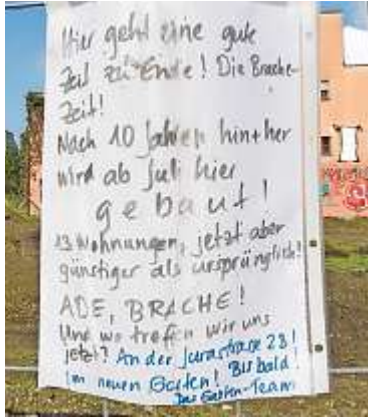 Hier geht eine gute
Zeit zu Ende! Die Brache-
Zeit!
Nach 10 Jahren hin+her
wird ab Juli hier
gebaut!
13 Wohnungen, jetzt aber
günstiger als ursprünglich!
ADE, BRACHE!
Und wo treffen wir uns
jetzt? An der Jurastrasse 28!
Im neuen Garten! Bis bald!
Das Garten-Team